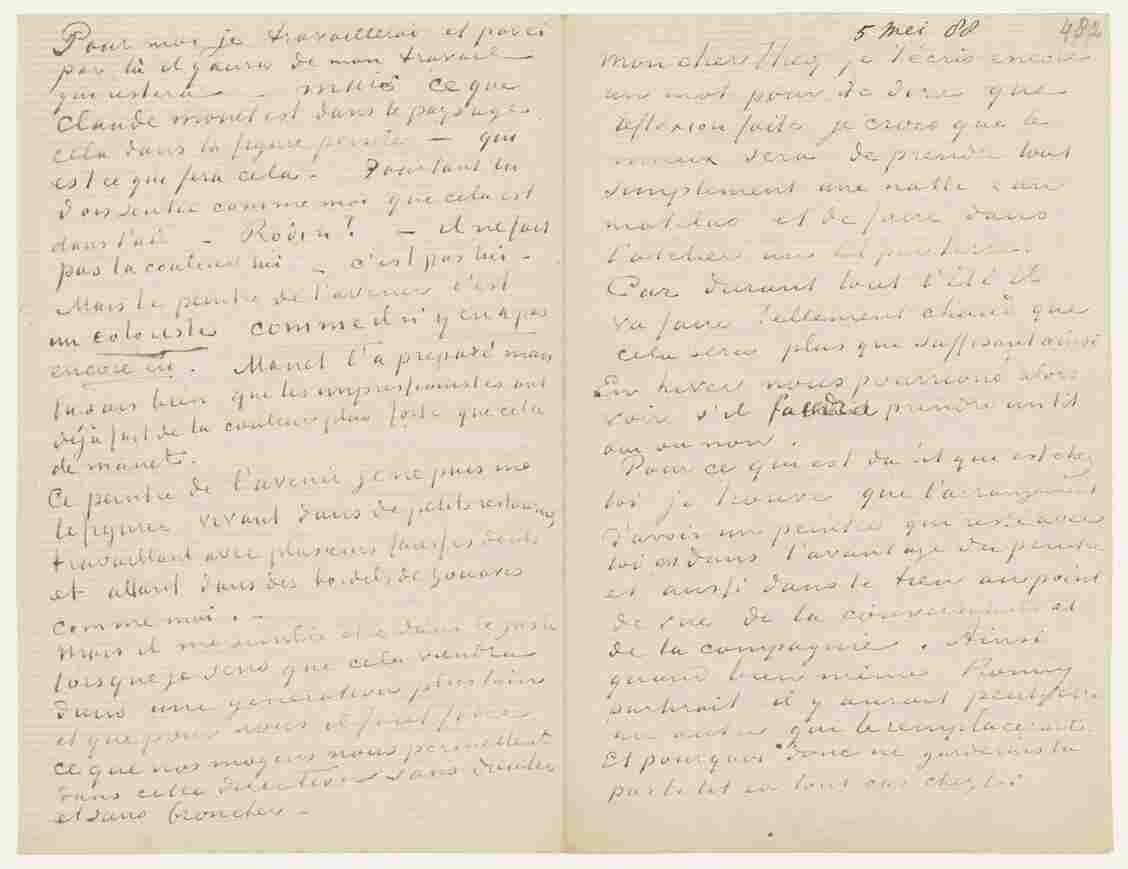 Pour moi je travaillerai et par ci
par là il y aura de mon travail
qui restera – mais ce que
Claude monet est dans le paysage
cela dans la figure peinte – qui
est ce que fera cela – Pourtant tu
dois sentir comme moi que cela est
dans l'air – Rodin? – il ne fait
pas la couleur lui – c'est pas lui –
Mais le peintre de l'avenir c'est
un coloriste comme il n'y en a pas
encore eu. Manet l'a préparé mais
tu sais bien que les impressionistes ont
déjà fait de la couleur plus forte que cela
de manet.
Ce peintre de l'avenir je ne puis me
le figurer vivant dans de petits restaurants,
travaillant avec plusieurs fausses dents
et allant dans des bordels de zouaves
comme moi. –
Mais il me semble être dans le juste
lorsque je sens que cela viendra
dans une génération plus loin
et que pour nous il faut faire
ce que nos moyens nous permettent
dans cette direction sans douter
et sans broncher –
5 mei 88
482
mon cher Theo, je t'écris encore
un mot pour te dire que
reflexion faite je crois que le
mieux sera de prendre tout
simplement une natte & un
matelas et de faire dans
l'atelier un lit par terre.
Car durant tout l'été il
va faire tellement chaud que
cela sera plus que suffisant ainsi
En hiver nous pourrions alors
voir s'il faudra prendre un lit
oui ou non.
Pour ce qui est du lit qui est chez
toi je trouve que l'arrangement
d'avoir un peintre qui reste avec
toi est dans l'avantage du peintre
et aussi dans le tien au point
de vue de la conversation et
de la compagnie. Ainsi
quand bien même Koning
partirait il y aurait peut être
un autre qui le remplacerait.
Et pourquoi donc ne garderais tu
pas le lit en tout cas chez toi